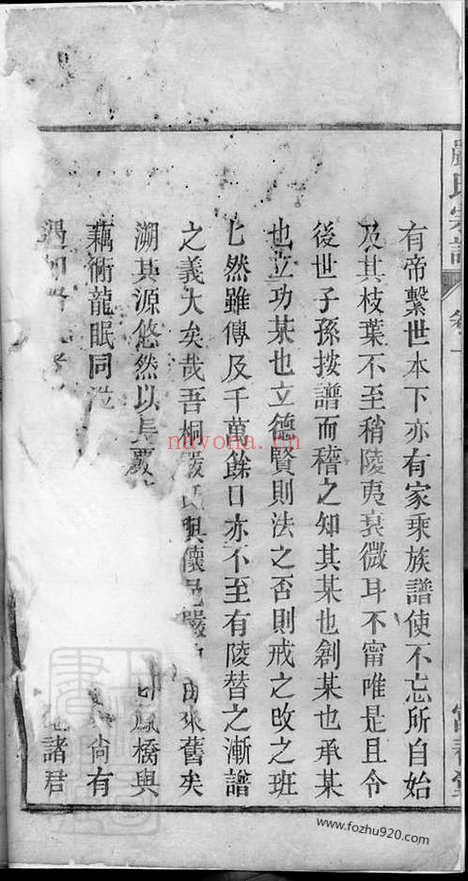 嚴氏宗譜
卷一
富春堂
有帝繫世本下亦有家乘族譜使不忘所自始
及其枝葉不至稍陵夷衰微耳不甯唯是且令
後世子孫按譜而稽之知其某也創某也承某
也立功某也立德賢則法之否則戒之攺之班
匕然雖傳及千萬餘口亦不至有陵替之漸譜
之義大矣哉吾桐嚴氏與懷邑嚴 由來舊矣
溯其源悠然以長嚴 鳳橋與
藕術龍眠同 尚有
諸君
nayona.cn
www.fozhu920.com